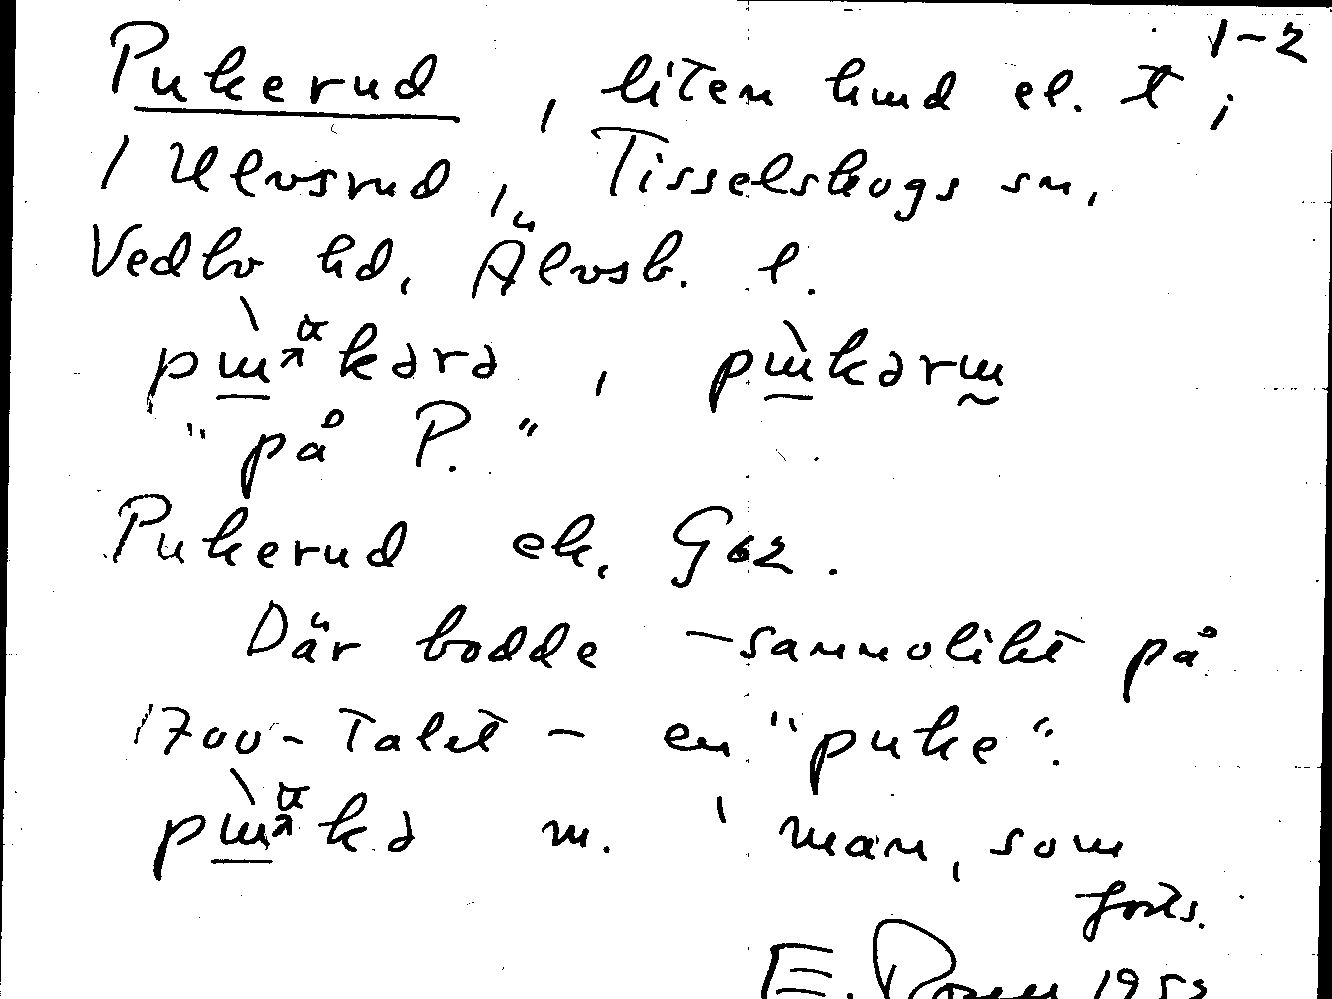 1-2
Pukerud, liten lind el. t;
i Ulvsrud, Tisselskogs sn,
Vedbo hd, Älvsb. l.
"på P."
Pukerud ek. G62.
Där bodde - sannolikt på
1700-talet - en "puke".
m. 'man, som
forts.
E. 195